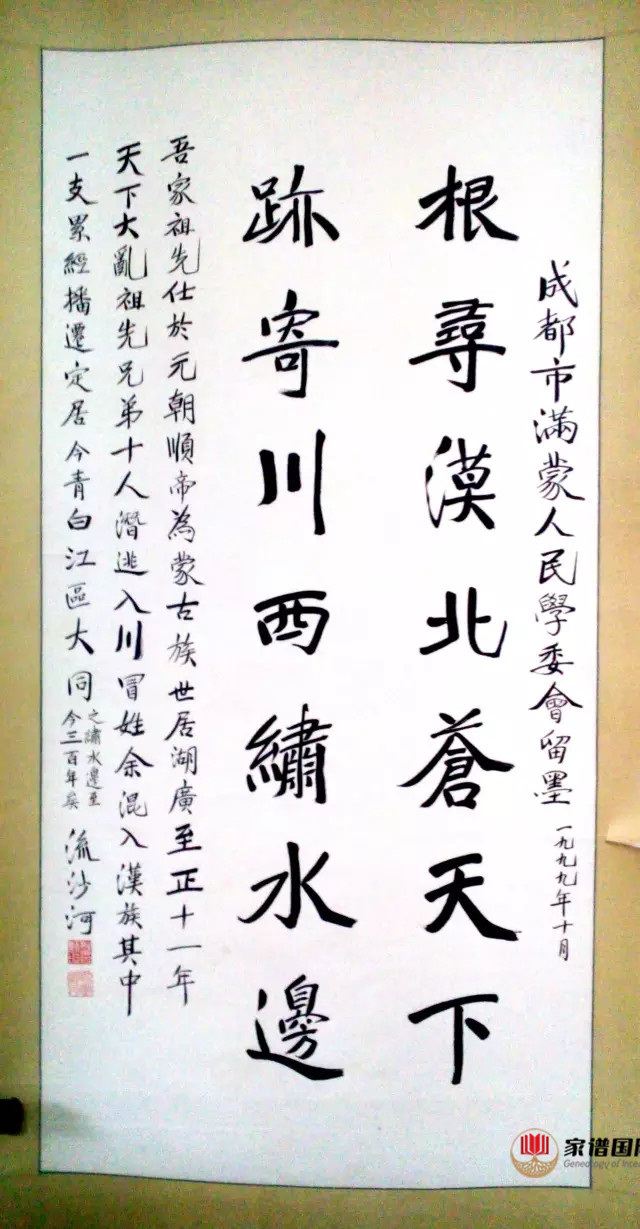 成都市滿蒙人民學委會留墨 一九九九年十月
根尋漠北蒼天下
跡寄川西繡水邊
吾家祖先仕於元朝順帝為蒙古族世居湖廣至正十一年
天下大亂祖先兄弟十人潛逃入川冒姓余混入漢族其中
一支累經播遷定居今青白江區大同
之繡水邊至
今三百年矣
流沙河
家谱国际
Genealogy of Inte